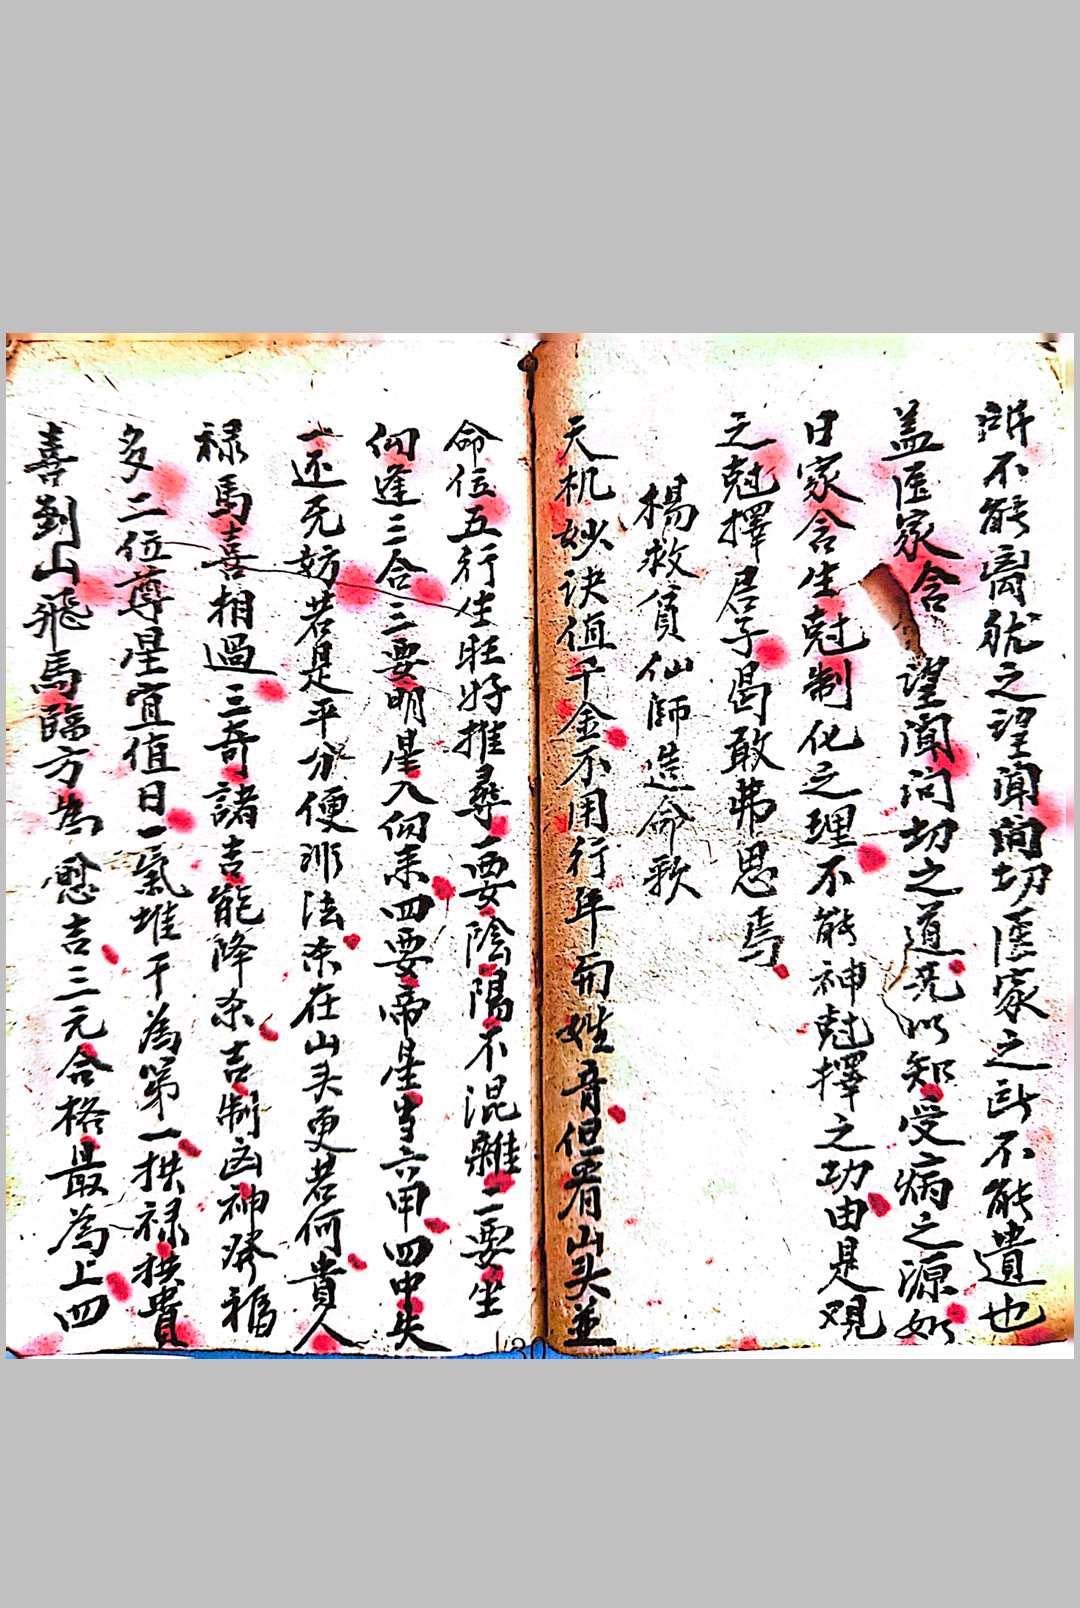 斷不能离脉之望闻问切医家之斷不能遺也
盖医家含望闻问切之道先以知受病之源如
日家含生尅制化之理不能神尅擇之功由是观
之尅擇君子曷敢弗思焉
楊救貧仙師造命歌
天机妙诀值千金不用行年而姓音但看山头並
命位五行生旺好推尋一要陰陽不混雜二要坐
向逢三合三要明星入向来四要帝星当六甲四中失
一还无妨若是平分便非法杀在山头更若何貴人
禄馬喜相過三奇諸吉能降杀吉制凶神发福
多二位尊星宜值日一氣堆干為第一拱禄拱貴
喜到山飛馬臨方為愈吉三元合格最為上四
130